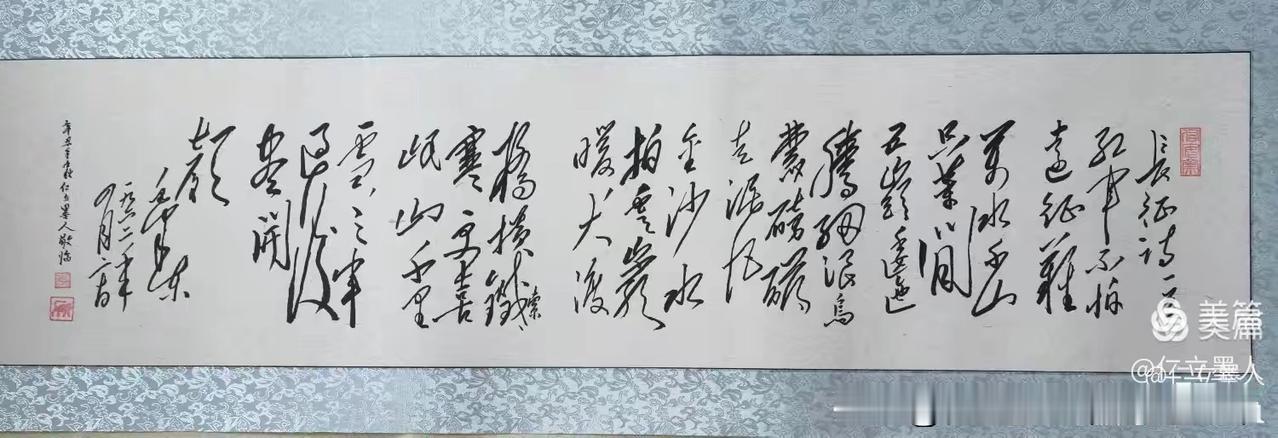 長征詩一首
紅軍不怕
遠征難
萬水千山
只等閒
五嶺逶迤
騰細浪烏
蒙磅礴
走泥丸
金沙水
拍雲崖
暖大渡
橋橫鐵索
寒更喜
岷山千里
雪三軍
過後
盡開
顏
毛澤東
一九六二年
四月二十日
辛丑 仁立墨人敬臨
美篇
@仁立墨人